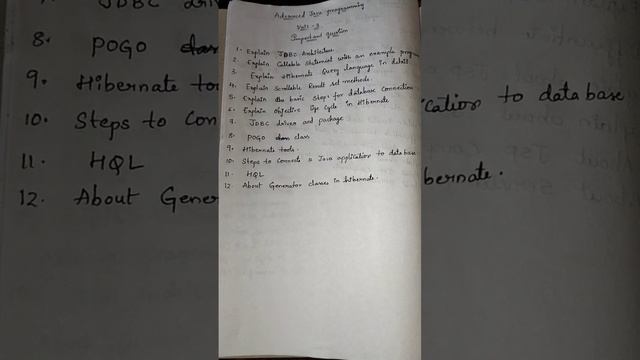 Advanced Java programming
Unit - 3
Important question
1. Explain JDBC Architecture.
2. Explain Callable Statement with an example program
3. Explain Hibernate Query language in detail.
4. Explain Scrollable Result set methods.
5. Explain the basic Steps for database Connection
6. Explain Objective life cycle in Hibernate
7. JDBC driver and package
8. POGO class
9. Hibernate tools.
10. Steps to Connect a Java application to database
11. HQL
12. About Generator classes in hibernate.
JDBC driv
8. POGO
9. Hibernate too
10. Steps to Con
ication to database
11. HQL
12. About Gener
bernate.